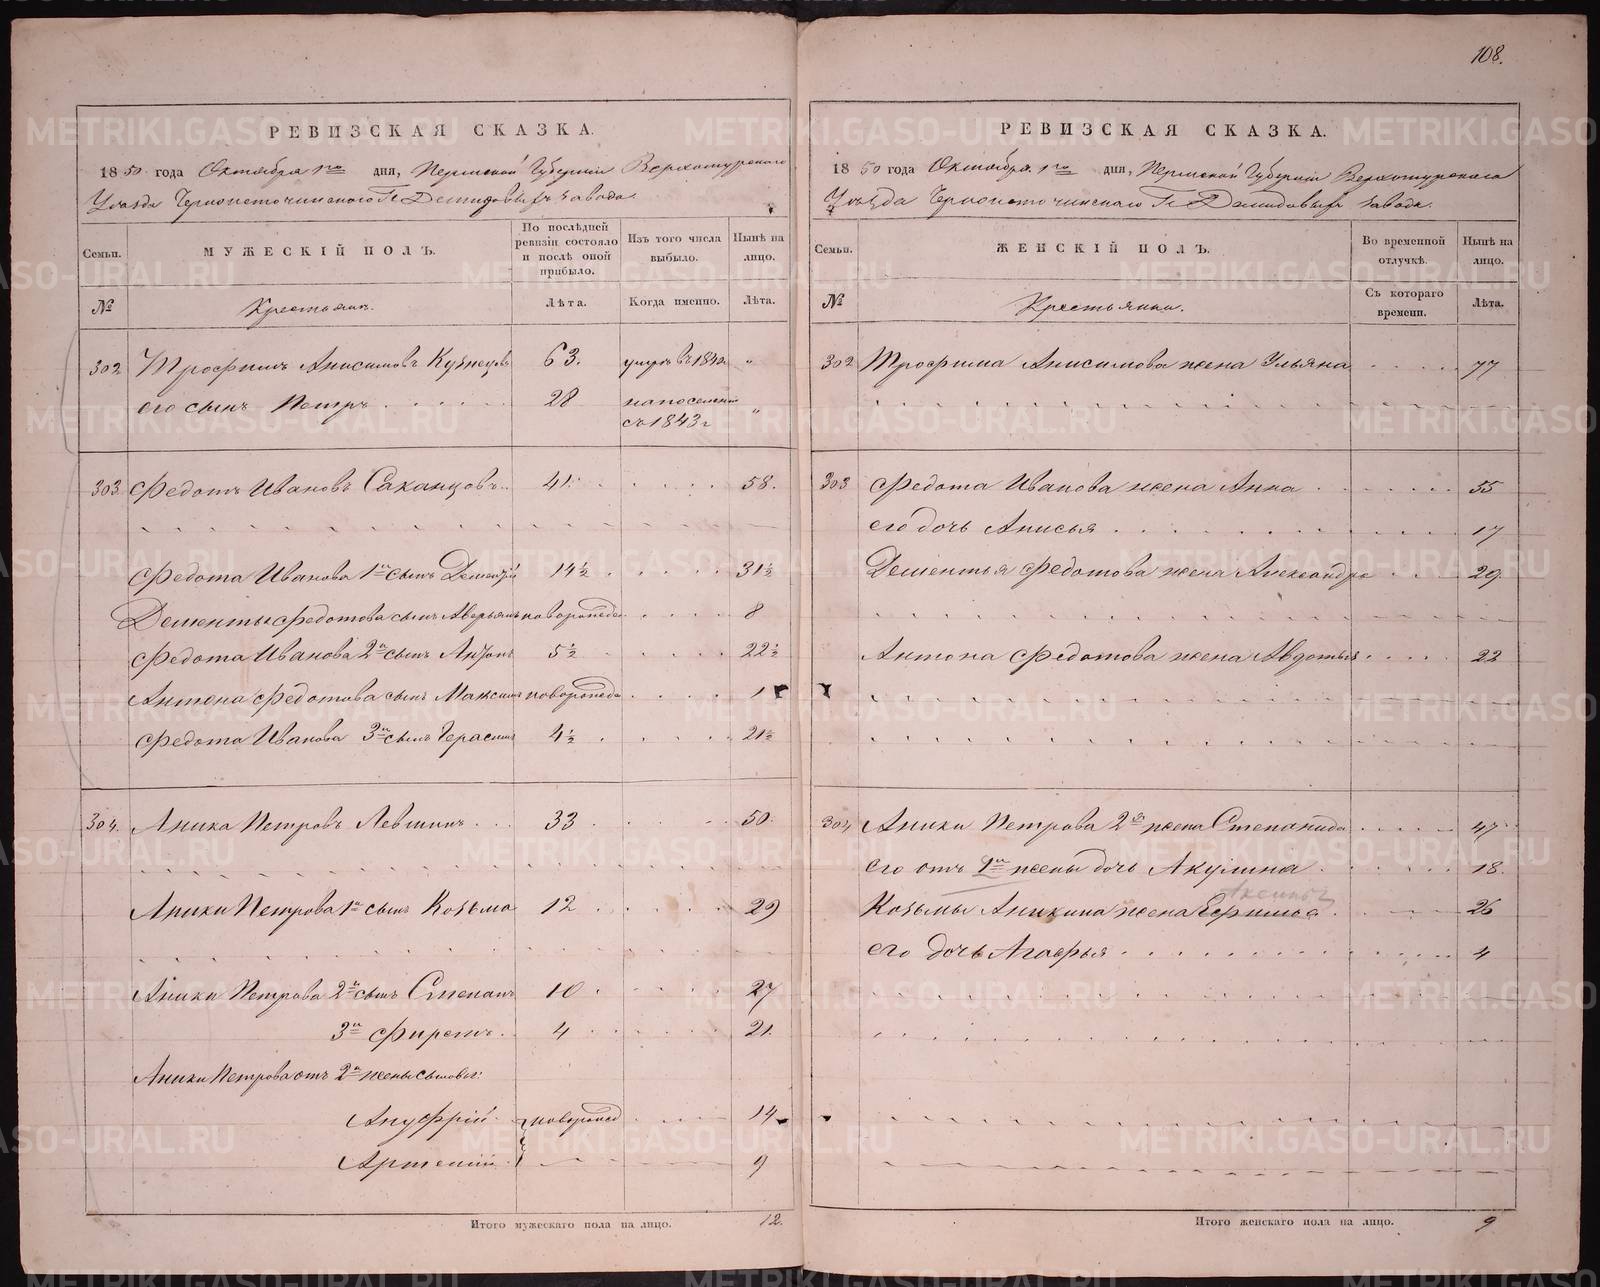 108.
РЕВИЗСКАЯ СКАЗКА.
1850 года Октября 1го дня, Пермской Губернии Верхотурского
Уѣзда Черноисточинского Гг Демидовыхъ завода.
Семьи.
МУЖЕСКІЙ ПОЛЪ.
По послѣдней ревизіи состояло и послѣ оной прибыло.
Изъ того числа выбыло.
Нынѣ на лицо.
№
Крестьянъ.
Лѣта.
Когда именно.
Лѣта.
302 Трофимъ Анисимовъ Кузнецовъ 63. умръ въ 1842. "
его сынъ Петръ 28 на поселеніи съ 1843 г "
303 Федотъ Ивановъ Саканцовъ 41. 58.
Федота Иванова 1й сынъ Дементій 14½ 31½
Дементья Федотова сынъ Аверьянъ новорожде 8
Федота Иванова 2й сынъ Антонъ 5½ 22½
Антона Федотова сынъ Максимъ новорожде 1
Федота Иванова 3й сынъ Герасимъ 4½ 21½
304. Аника Петровъ Левшинъ 33 50.
Аники Петрова 1й сынъ Козьма 12 29
Аники Петрова 2й сынъ Степанъ 10 27
3й Фирстъ 4 21.
Аники Петрова отъ 2й жены сыновья:
Ануфрій новорожд 14
Артемій 9
Итого мужескаго пола на лицо. 12.
РЕВИЗСКАЯ СКАЗКА.
1850 года Октября 1го дня, Пермской Губерніи Верхотурского
Уѣзда Черноисточинского Гг Демидовыхъ завода.
Семьи.
ЖЕНСКІЙ ПОЛЪ.
Во временной отлучкѣ.
Нынѣ на лицо.
№
Крестьянки.
Съ котораго времени.
Лѣта.
302 Трофима Анисимова жена Ульяна 77
303 Федота Иванова жена Анна 55
его дочь Анисья 17
Дементья Федотова жена Александра 29.
Антона Федотова жена Авдотья 22
304 Аники Петрова 2я жена Степанида 47
его отъ 1й жены дочь Акулина 18.
Аксинья
Козьмы Аникина жена 26
его дочь Агафья 4
Итого женскаго пола на лицо. 9